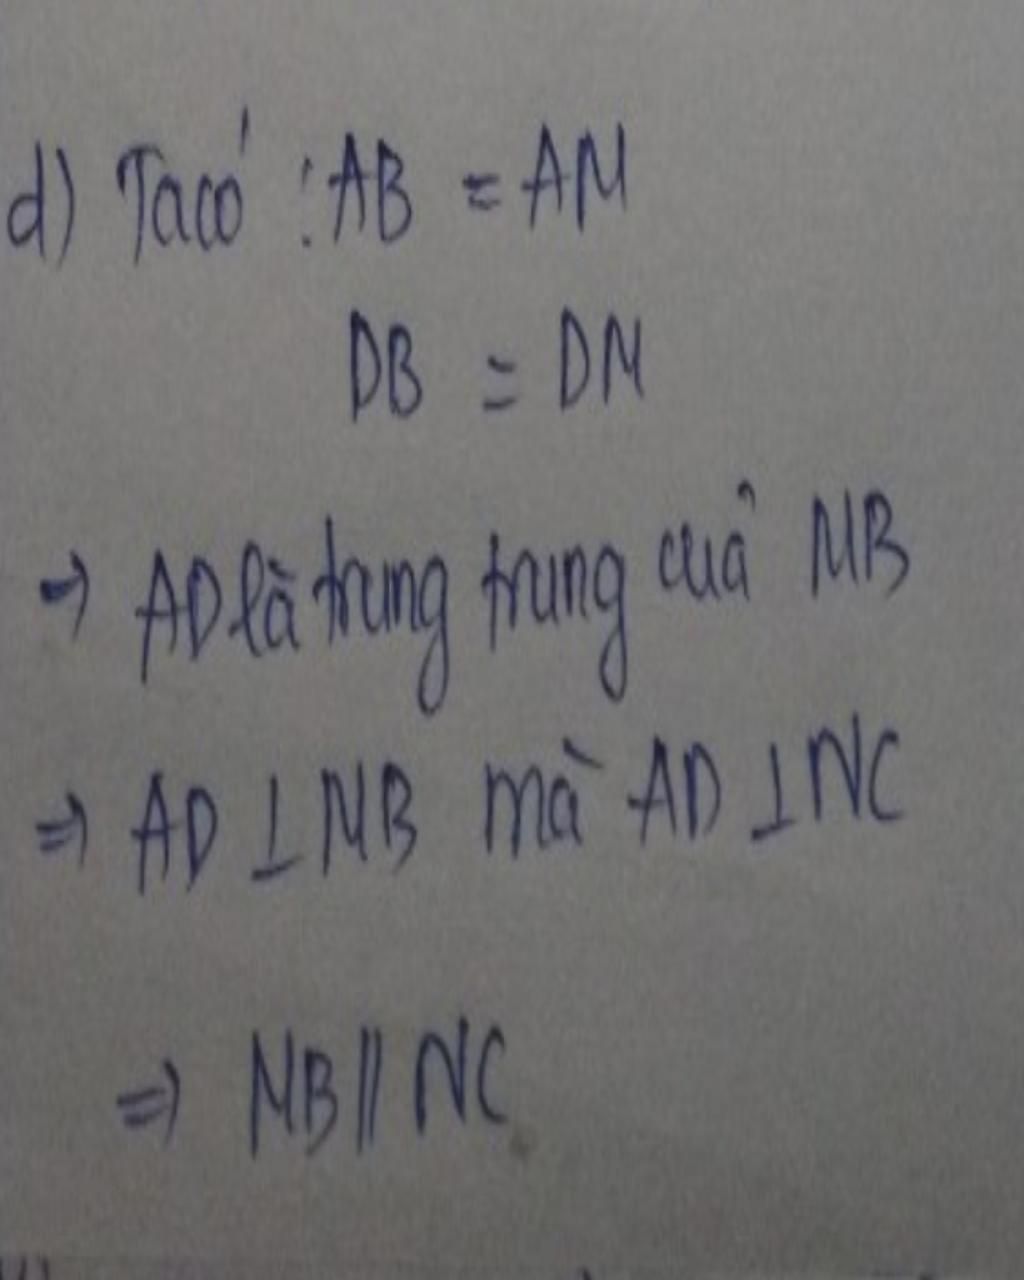 d) Ta có : AB = AM
DB = DM
→ AD là trung trung của MB
⇒ AD ⊥ MB mà AD ⊥ NC
⇒ MB // NC